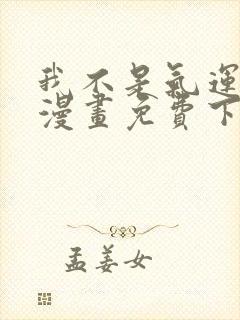 我不是氣運
漫畫免費下
孟姜女